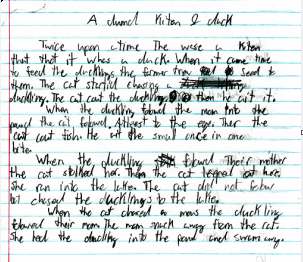 A
Kiten & duck
Twice upon a time The wase a Kiten
that that it whas a duck. When it came time
to feed the ducklings the farmer seed to
them. The cat started chasing
duckling. The cat caut the duckling then he it.
When the duckling folowd the man into the
pound the cat folowd. to the ege. Ther the
cat caut fish. He the small once in one
bite.
When the duckling folowd Their mother
the cat her. Then the cat leaped at here.
She ran into the lake. The cat did not folow
but chased the ducklings to the lake.
When the cat chased mows the duckling
folowed their mom The mom snuck away from the cat.
She the duckling into the pond and swam away.